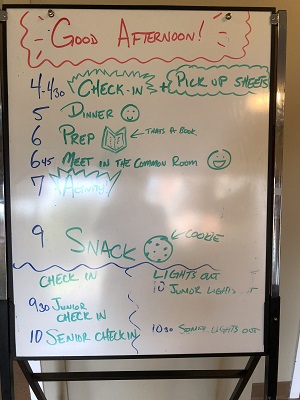 GOOD AFTERNOON!
4-4:30 CHECK-IN + PICK UP SHEETS
5 DINNER
6 PREP THATS A BOOK
6:45 MEET IN THE COMMON ROOM
7 ACTIVITY
9 SNACK COOKIE
CHECK IN LIGHTS OUT
10 JUNIOR LIGHTS
9:30 JUNIOR CHECK IN
10 SENIOR CHECK IN 10:30 LIGHTS OUT